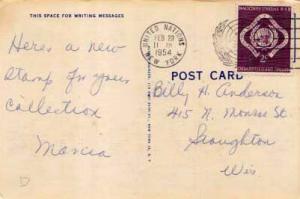 THIS SPACE FOR WRITING MESSAGES
Heres a new
stamp for your
collection
Marcia
UNITED NATIONS
FEB 23
1954
NEW YORK
2¢
POST CARD
Billy H. Anderson
415 N. Monroe St.
Stoughton
Wis.
D